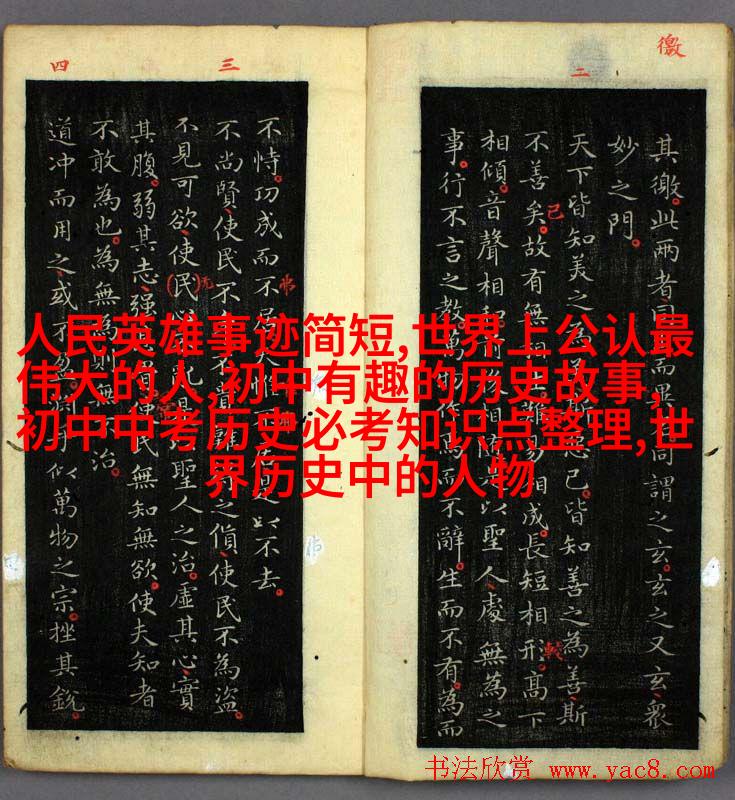 人民英雄事迹简短,世界上公认最
伟大的人,初中有趣的历史故事,
初中中考历史必考知识点整理,世
界历史中的人物
徼
二
其徼此两者同而異同謂之玄玄之又玄衆
妙之門
天下皆知美之為斯惡已皆知善之為善斯
不善矣故有無相難易相成長短相形高下
相傾音聲相和以聖人處無為之
事行不言之教萬物作焉而不辭生而不有為而
三
四
不恃功成而不居夫惟是以不去
不尚賢使民不貴難之償使民不為盜
不見可欲使民亂是聖人之治虛其心實
其腹弱其志強其使民無知無欲使夫知者
不敢為也為無為則無不治
道冲而用之或不盈淵乎似萬物之宗挫其銳
书法欣赏 www.yac8.com